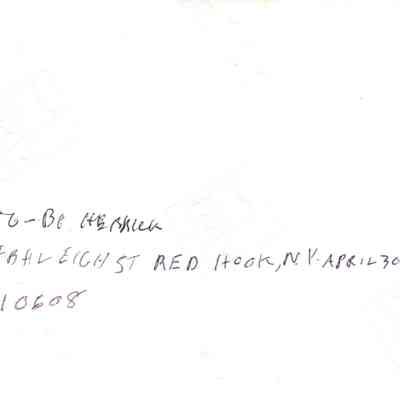 TO-BE HERRICK
FRALEIGH ST RED HOOK, N.Y. APRIL 30
10608